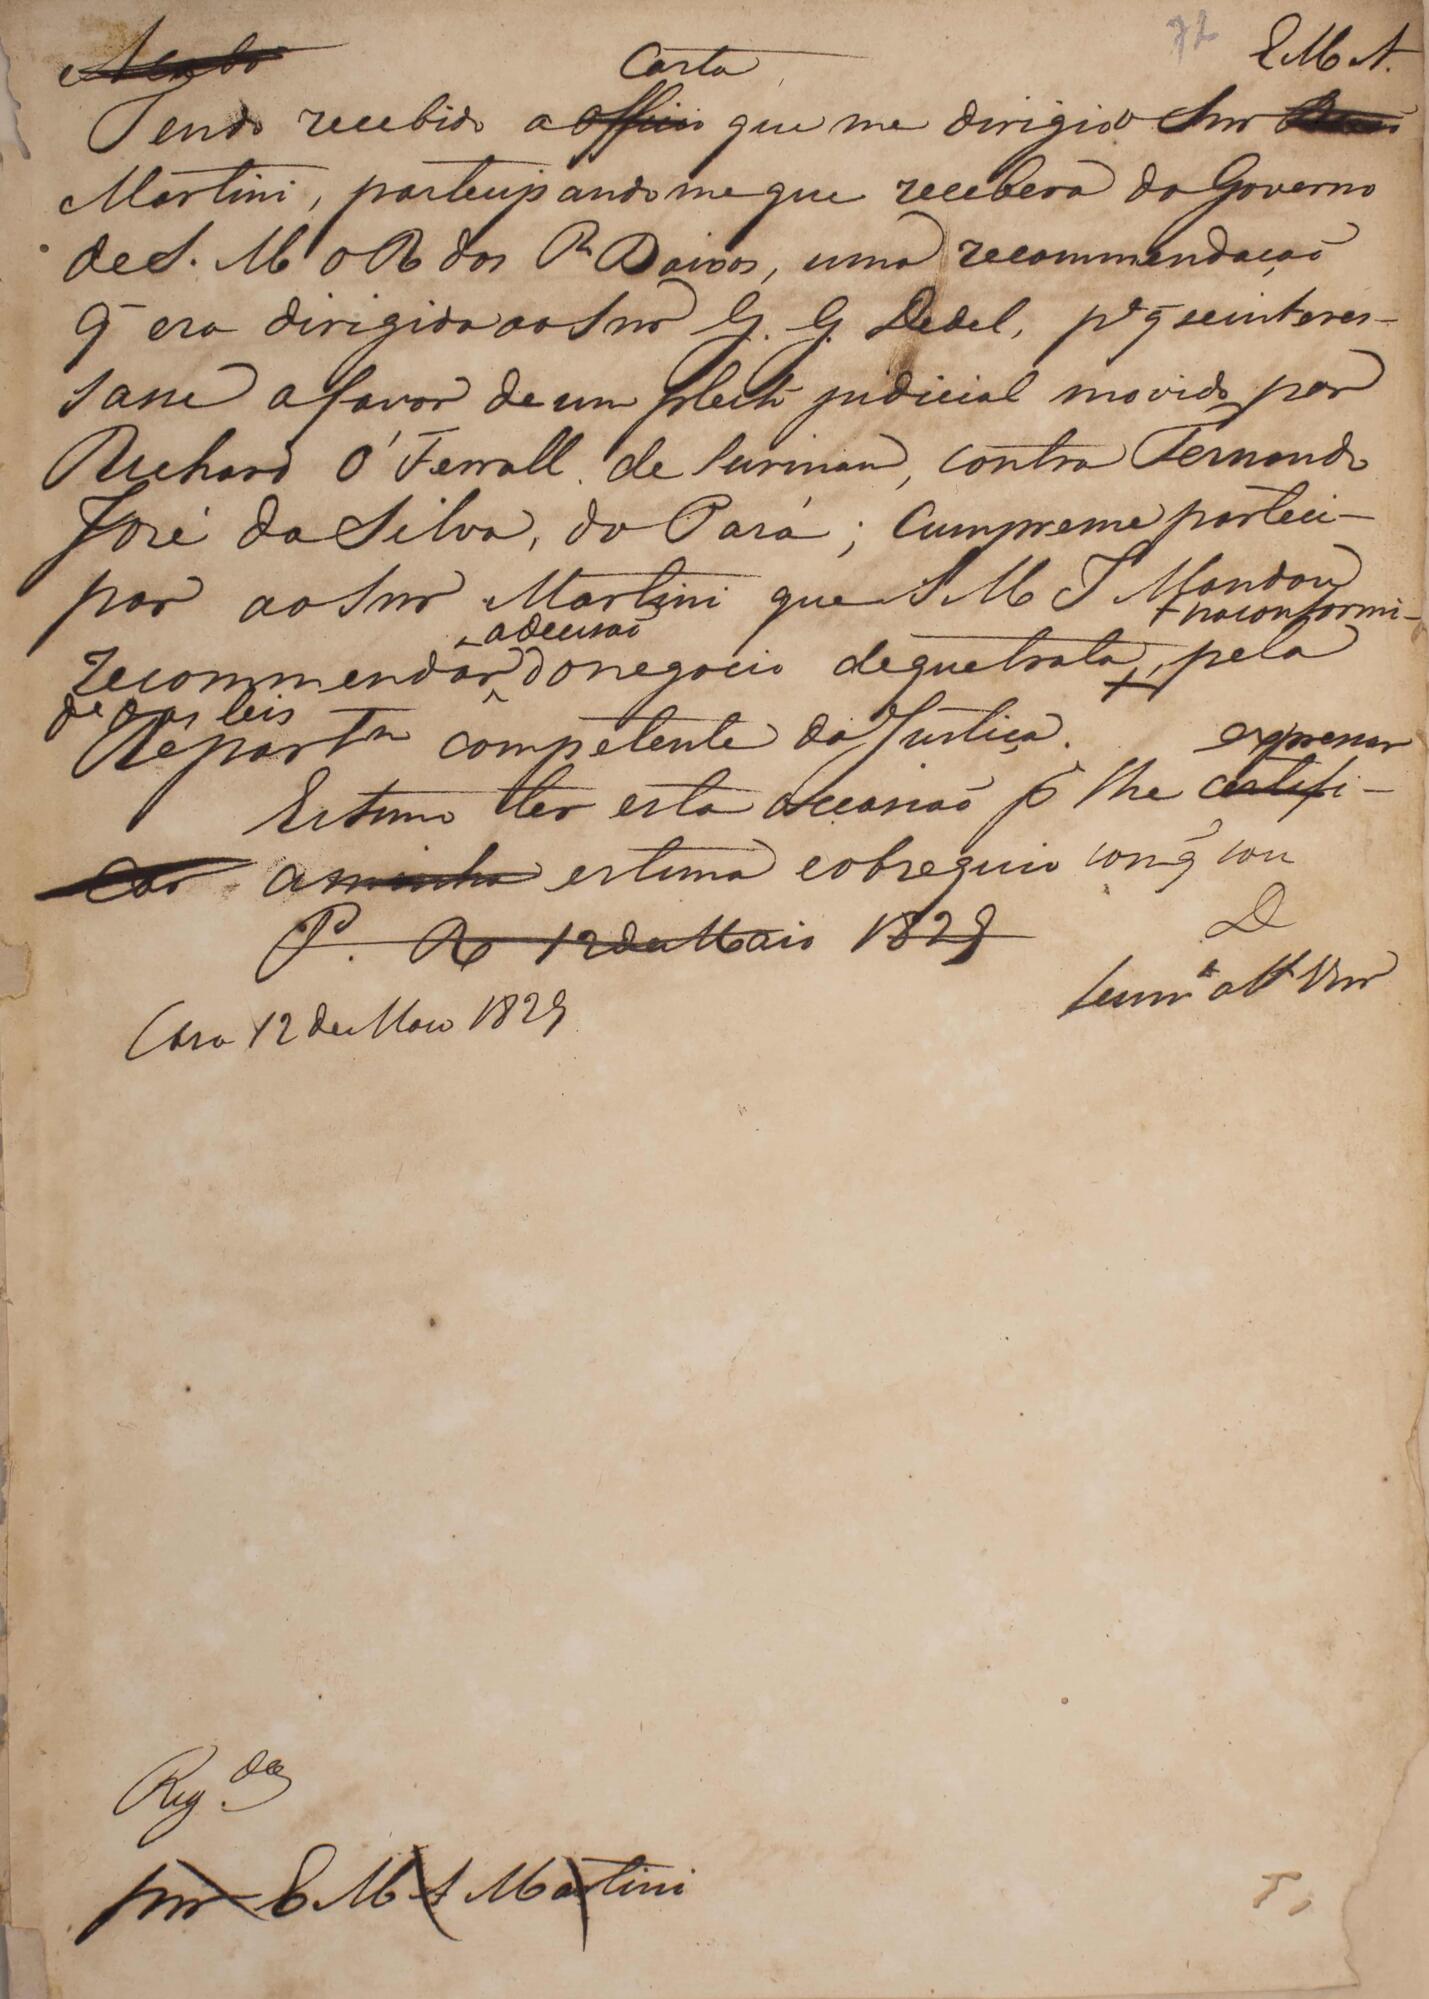 72
Carta E. M. A.
Tendo recebido a officio que me dirigio o Snr
Martini, participandome que recebera do Governo
de S. M. o R. dos Ps. Baixos, uma recommendação
q̃ era dirigida ao Snr G. G. Dedel, pª q̃ se interes-
sasse a favor de um pleito judicial movido por
Richard O'Ferrall de Surinam, contra Fernando
José da Silva, do Pará; Cumpreme partici-
par ao Snr Martini que S M I Mandou
+ na conformi-
a decisão
recommendar do negocio de que trata +, pela
de das leis
Repartm competente da Justiça.
expressar
Estimo ter esta occasião p̃ lhe certifi-
car a minha estima e obsequio con q̃ sou
P. R 12 de Maio 1829
D
Casa 12 de Maio 1829
Reg.da
Snr E M A Martini